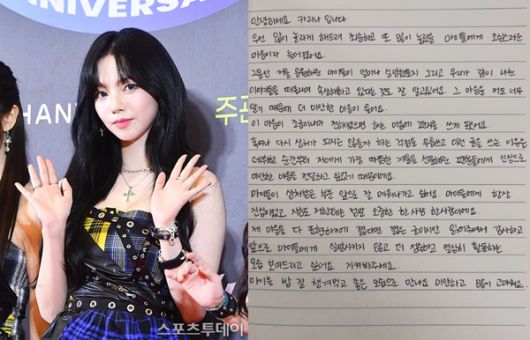 ANNIVERSAR
HAN
주관
스포츠투데이
안녕하세요 카리나 입니다
우선 많이 놀라게 해드려 죄송하고 또 많이 놀랐을 마이들에게 조심스러운
마음이라 늦어졌어요.
그동안 저를 응원해준 마이들이 얼마나 실망했을지 그리고 우리가 같이 나눈
이야기들을 떠올리며 속상해하고 있다는 것도 잘 알고있어요. 그 마음을 저도 너무
알기 때문에 더 미안한 마음이 들어요.
이 마음이 조금이나마 전해졌으면 하는 마음에 편지를 쓰게 됐어요.
혹여나 다시 상처가 되지는 않을까 하는 걱정을 무릅쓰고 이런 글을 쓰는 이유는
데뷔한 순간부터 저에게 가장 따뜻한 겨울을 선물해준 팬분들에게 진심으로
미안한 마음을 전달하고 싶었기 때문이에요.
마이들이 상처받은 부분 앞으로 잘 메워나가고 싶어요. 마이들에게 항상
진심이었고 지금도 제한테는 정말 소중한 한 사람 한사람이에요.
제 마음을 다 표현하기에 짧다면 짧은 글이지만 읽어주셔서 감사하고
앞으로 마이들에게 실망시키지 않고 더 성숙하고 열심히 활동하는
모습 보여드리고 싶어요. 지켜봐주세요.
마이들 밥 잘 챙겨먹고 좋은 모습으로 만나요 미안하고 많이 고마워요.